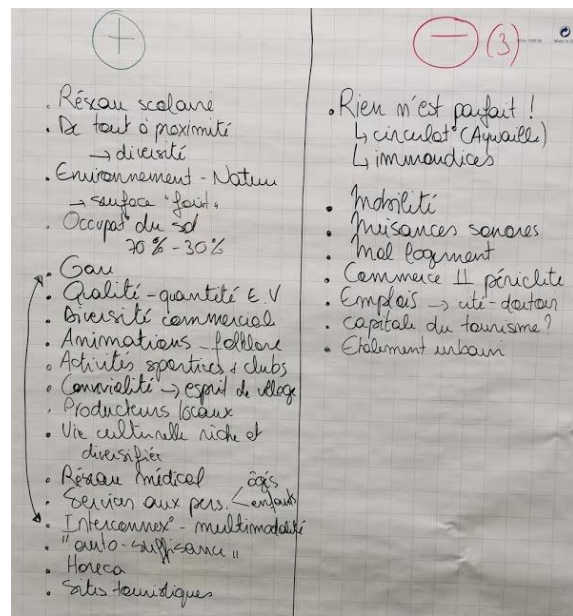 +
. Réseau scolaire
. De tout à proximité
→ diversité
. Environnement - Nature
→ surface "forêt"
. Occupat° du sol
70% - 30%
. Gare
. Qualité - quantité E.V
. Diversité commercial
. Animations - folklore
. Activités sportives + clubs
. Convivialité → esprit de village
. Producteurs locaux
. Vie culturelle riche et
diversifiée
. Réseau médical
. Services aux pers. < âgés
enfants
. Interconnex° - multimodalité
. "auto-suffisance"
. Horeca
. Sites touristiques
- (3)
. Rien n'est parfait !
↳ circulat° (Aywaille)
↳ immondices
. Mobilité
. Nuisances sonores
. Mal logement
. Commerce périclite
. Emplois → cité-dortoir
. Capitale du tourisme ?
. Etalement urbain